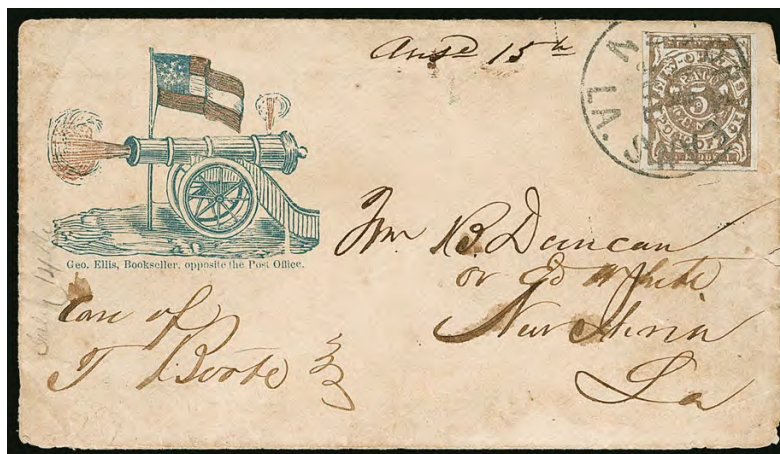 Ansd 15th
PAID
5
LA.
Geo. Ellis, Bookseller, opposite the Post Office.
Wm B. Duncan
or Ed White
New Iberia
La
Care of
T Boote